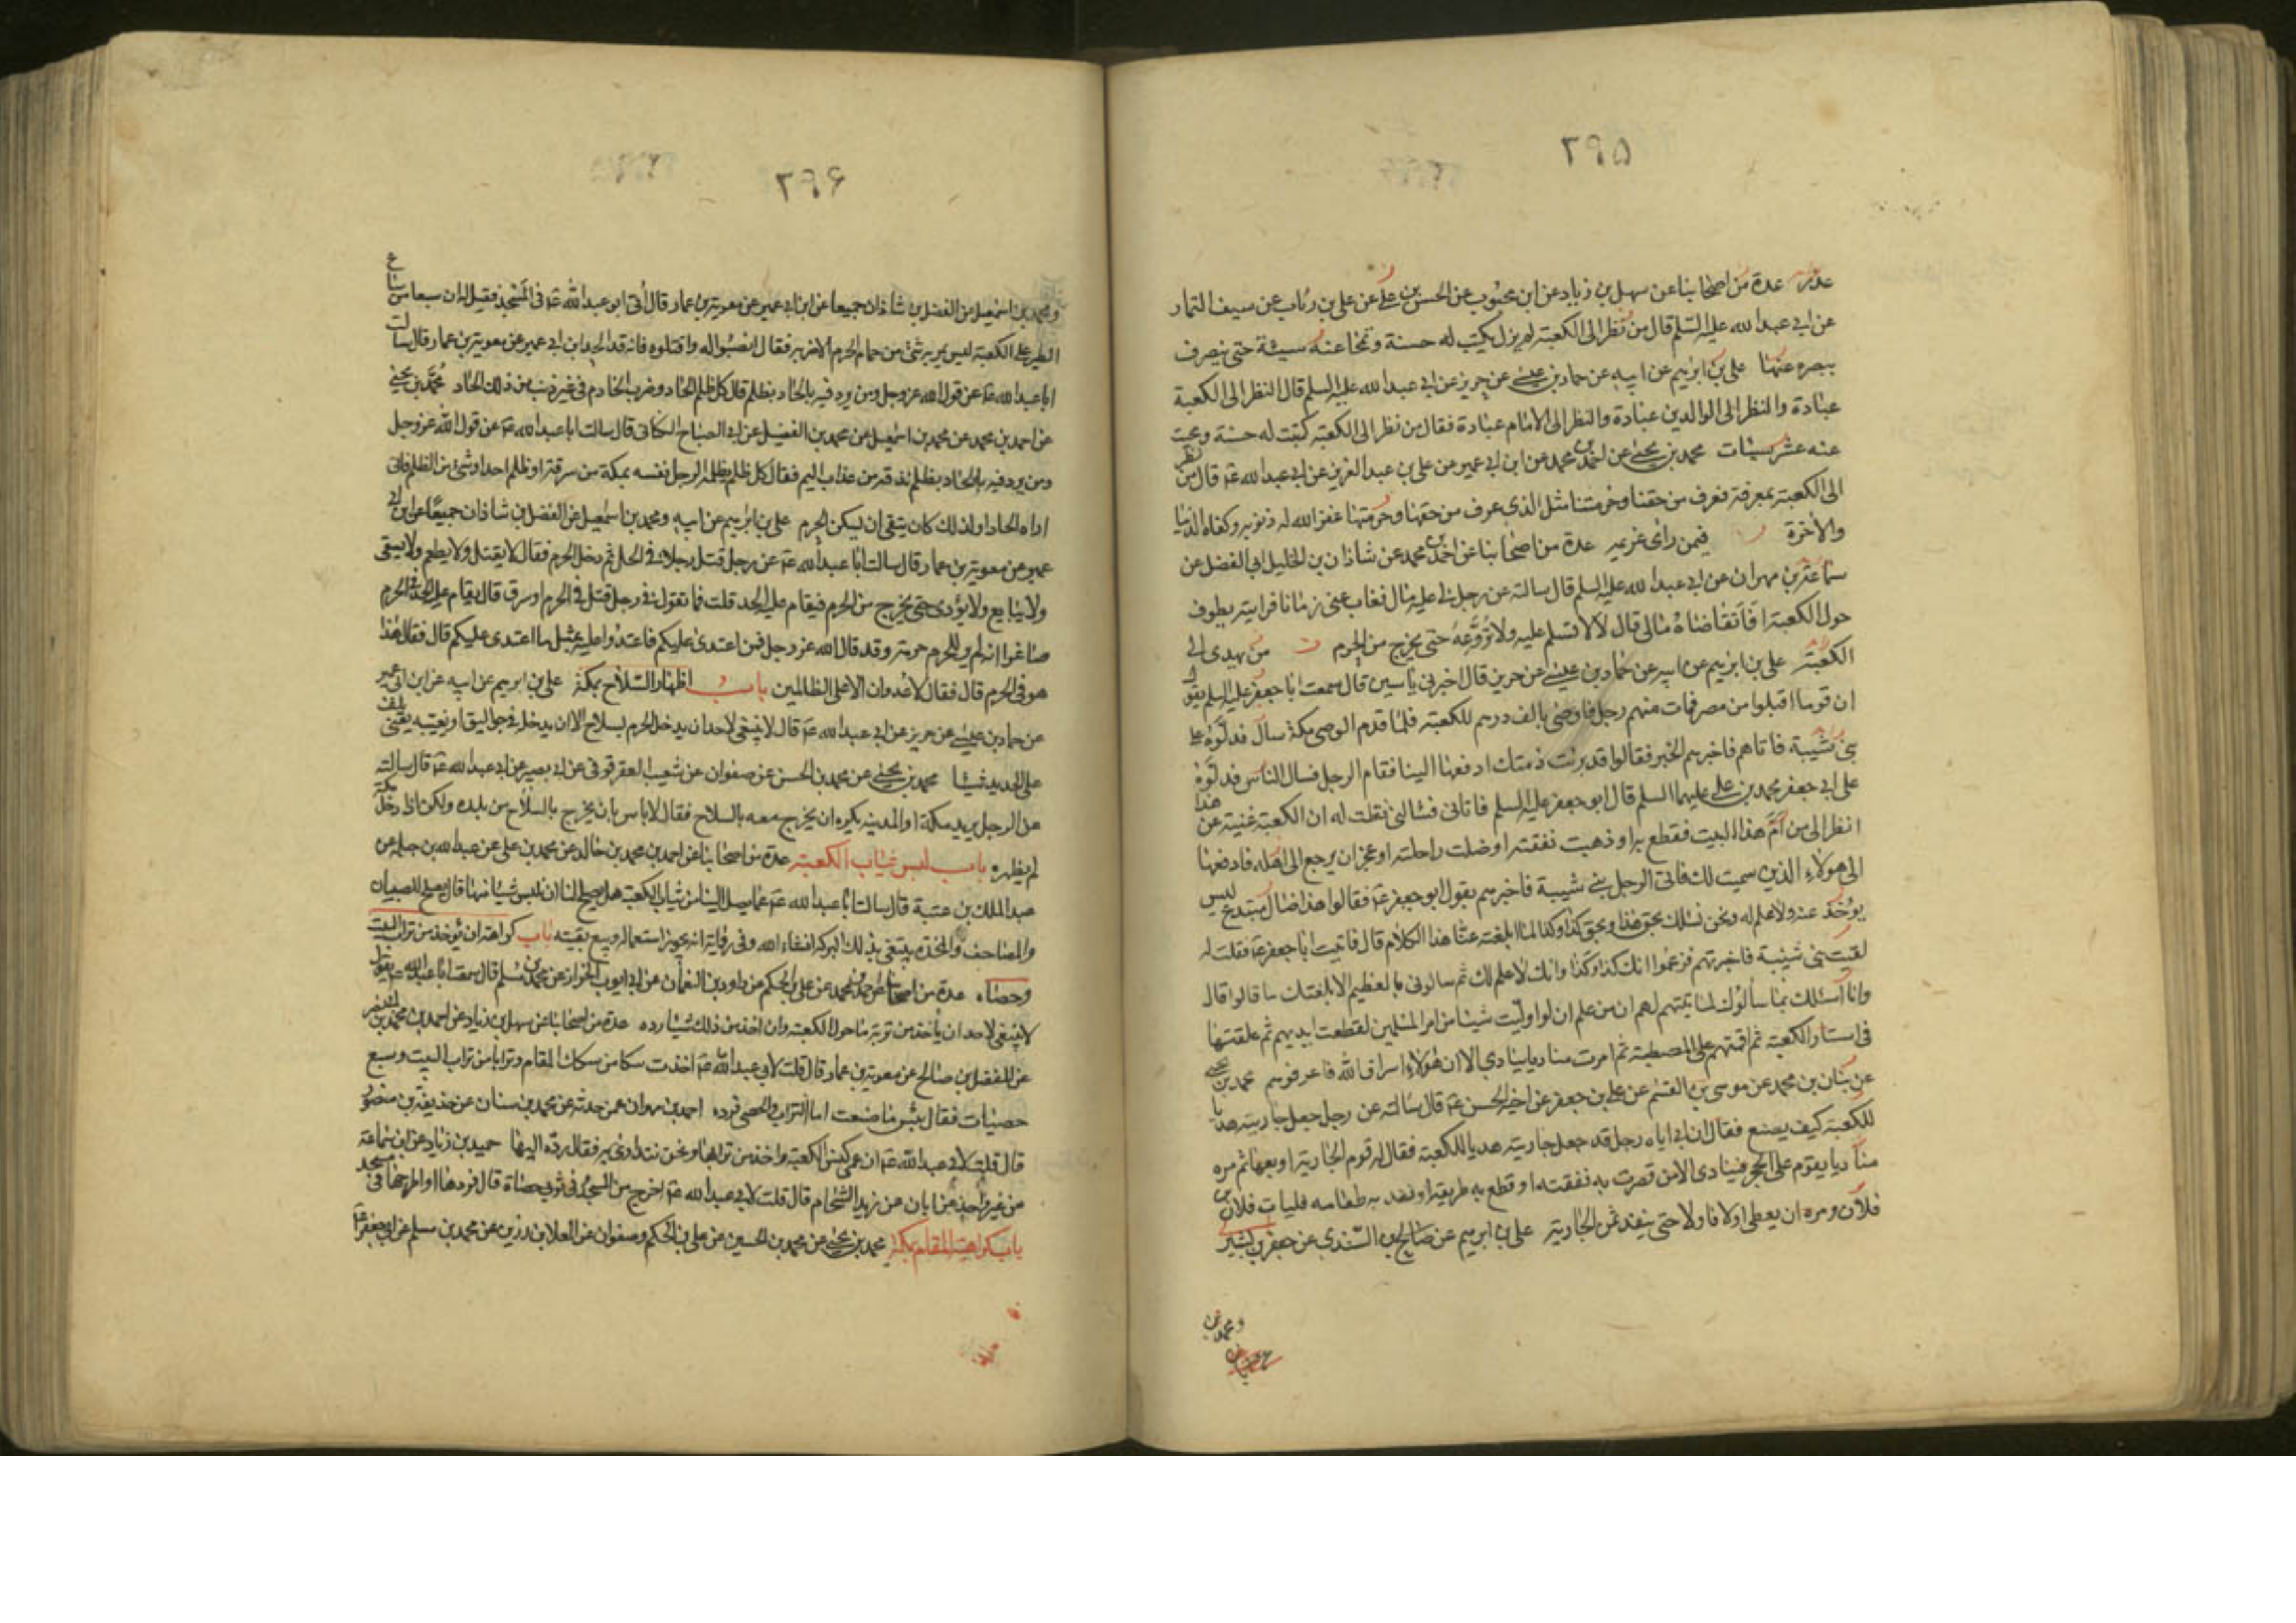 ٢٩۵
عدة من اصحابنا عن سهل بن زياد عن ابن محبوب عن الحسن بن علي عن علي بن رئاب عن سيف التمار
عن ابى عبد الله عليه السلم قال من نظر الى الكعبة لم يزل يكتب له حسنة وتمحا عنه سيئة حتى ينصرف
ببصره عنها علي بن ابرهيم عن ابيه عن حماد بن عيسى عن حريز عن ابى عبد الله عليه السلم قال النظر الى الكعبة
عبادة والنظر الى الوالدين عبادة والنظر الى الامام عبادة فقال من نظر الى الكعبة كتبت له حسنة ومحيت
عنه عشر سيئات محمد بن يحيى عن احمد بن محمد عن ابن ابى عمير عن علي بن عبد العزيز عن ابى عبد الله ع قال من نظر
الى الكعبة بمعرفة فعرف من حقنا وحرمتنا مثل الذى عرف من حقها وحرمتها غفر الله له ذنوبه وكفاه الدنيا
والآخرة فيمن رأى غريمه عدة من اصحابنا عن احمد بن محمد عن شاذان بن الخليل ابى الفضل عن
سماعة بن مهران عن ابى عبد الله عليه السلم قال سالته عن رجل لى عليه مال فغاب عنى زمانا فرايته يطوف
حول الكعبة افاتقاضاه مالى قال لا لا تسلم عليه ولا تروعه حتى يخرج من الحرم من يهدى الى
الكعبة علي بن ابرهيم عن ابيه عن حماد بن عيسى عن حريز قال اخبرنى ياسين قال سمعت ابا جعفر عليه السلم يقول
ان قوما اقبلوا من مصر فمات منهم رجل فاوصى بالف درهم للكعبة فلما قدم الوصى مكة سال فدلوه على
بنى شيبة فاتاهم فاخبرهم الخبر فقالوا قد برئت ذمتك ادفعها الينا فقام الرجل فسال الناس فدلوه
على ابى جعفر محمد بن علي عليهما السلم قال ابو جعفر عليه السلم فاتانى فسالنى فقلت له ان الكعبة غنية عن هذا
انظر الى من ام هذا البيت فقطع به او ذهبت نفقته او ضلت راحلته او عجز ان يرجع الى اهله فادفعها
الى هولاء الذين سميت لك فاتى الرجل بنى شيبة فاخبرهم بقول ابو جعفر ع فقالوا هذا ضال مبتدع ليس
يؤخذ عنه ولا علم له ونحن نسئلك بحق هذا وبحق كذا وكذا لما ابلغته عنا هذا الكلام قال فاتيت ابا جعفر ع فقلت له
لقيت بنى شيبة فاخبرتهم فزعموا انك كذا وكذا وانك لا علم لك ثم سالونى بالعظيم الا بلغتك ما قالوا قال
وانا اسئلك بما سألوك لما اتيتهم فقلت لهم ان من علم ان لو وليت شيئا من امر المسلمين لقطعت ايديهم ثم علقتها
فى استار الكعبة ثم اقمتهم على المصطبة ثم امرت مناديا ينادى الا ان هولاء اسراق الله فاعرفوهم محمد بن يحيى
عن بنان بن محمد عن موسى بن القسم عن علي بن جعفر عن اخيه ابى الحسن ع قال سالته عن رجل جعل جاريته هديا
للكعبة كيف يصنع فقال ان ابى اتاه رجل قد جعل جاريته هديا للكعبة فقال له قوم الجارية او بعها ثم مر
مناديا يقوم على الحجر فينادى الا من قصرت به نفقته او قطع به طريقه او نفد به طعامه فليات فلان بن
فلان ومره ان يعطى اولا فاولا حتى ينفد ثمن الجارية علي بن ابرهيم عن صالح بن السندى عن جعفر بن بشير
ومحمد بن
٢٩۶
ومحمد بن اسمعيل عن الفضل بن شاذان جميعا عن ابن ابى عمير عن معوية بن عمار قال أتى ابو عبد الله ع فى المسجد فقيل له ان سبعا من سباع
الطير على الكعبة ليس يمر به شئ من حمام الحرم الا ضربه فقال انصبوا له واقتلوه فانه قد الحد ابن ابى عمير عن معوية بن عمار قال سالت
ابا عبد الله ع عن قول الله عز وجل ومن يرد فيه بالحاد بظلم قال كل ظلم الحاد وضرب الخادم فى غير ذنب من ذلك الحاد محمد بن يحيى
عن احمد بن محمد عن محمد بن اسمعيل عن محمد بن الفضيل عن ابى الصباح الكنانى قال سالت ابا عبد الله ع عن قول الله عز وجل
ومن يرد فيه بالحاد بظلم نذقه من عذاب اليم فقال كل ظلم يظلمه الرجل نفسه بمكة من سرقة او ظلم احد او شئ من الظلم فانى
اراه الحادا ولذلك كان يتقى ان يسكن الحرم علي بن ابرهيم عن ابيه ومحمد بن اسمعيل عن الفضل بن شاذان جميعا عن ابن ابى
عمير عن معوية بن عمار قال سالت ابا عبد الله ع عن رجل قتل رجلا فى الحل ثم دخل الحرم فقال لا يقتل ولا يطعم ولا يسقى
ولا يبايع ولا يؤدى حتى يخرج من الحرم فيقام عليه الحد قلت فما تقول فى رجل قتل فى الحرم او سرق قال يقام عليه الحد فى الحرم
صاغرا انه لم ير للحرم حرمة وقد قال الله عز وجل فمن اعتدى عليكم فاعتدوا عليه بمثل ما اعتدى عليكم قال فقال هذا
هو فى الحرم قال فقال لا عدوان الا على الظالمين باب اظهار السلاح بمكة علي بن ابرهيم عن ابيه عن ابن ابى عمير
عن حماد بن عيسى عن حريز عن ابى عبد الله ع قال لا ينبغى لاحد ان يدخل الحرم بسلاح الا ان يدخل فى جواليق او يغيبه يعنى يلف
على الحديد شيئا محمد بن يحيى عن محمد بن الحسن عن صفوان عن شعيب العقرقوفى عن ابى بصير عن ابى عبد الله ع قال سالته
عن الرجل يريد مكة او المدينة يكره ان يخرج معه بالسلاح فقال لا باس بان يخرج بالسلاح من بلده ولكن اذا دخل مكة
لم يظهره باب لبس ثياب الكعبة عدة من اصحابنا عن احمد بن محمد بن خالد عن محمد بن على عن عبد الله بن جبلة عن
عبد الملك بن عتبة قال سالت ابا عبد الله ع عما يصل الينا من ثياب الكعبة هل يصلح لنا ان نلبس شيئا منها قال يصلح للصبيان
والمصاحف والمخدة يبتغى بذلك البركة انشاء الله وفى رواية انه يجوز استعماله وبيع بقيته باب كراهة ان يؤخذ من تراب البيت
وحصاه عدة من اصحابنا عن احمد بن محمد عن علي بن الحكم عن داود بن النعمان عن ابى ايوب الخزاز عن محمد بن مسلم قال سمعت ابا عبد الله ع يقول
لا ينبغى لاحد ان يأخذ من تربة ما حول الكعبة وان اخذ من ذلك شيئا رده عدة من اصحابنا عن سهل بن زياد عن احمد بن محمد بن ابى نصر
عن المفضل بن صالح عن معوية بن عمار قال قلت لابى عبد الله ع اخذت سكا من سكك المقام وترابا من تراب البيت وسبع
حصيات فقال بئس ما صنعت اما التراب والحصى فرده احمد بن مهران عمن حدثه عن محمد بن سنان عن حذيفة بن منصور
قال قلت لابى عبد الله ع ان عمى كنس الكعبة واخذ من ترابها ونحن نتداوى به فقال رده اليها حميد بن زياد عن ابن سماعة
عن غير واحد عن ابان عن زيد الشحام قال قلت لابى عبد الله ع اخرج من المسجد فى ثوبى حصاة قال فردها او اطرحها فى مسجد
باب كراهية المقام بمكة محمد بن يحيى عن محمد بن الحسين عن علي بن الحكم وصفوان عن العلا بن رزين عن محمد بن مسلم عن ابى جعفر ع